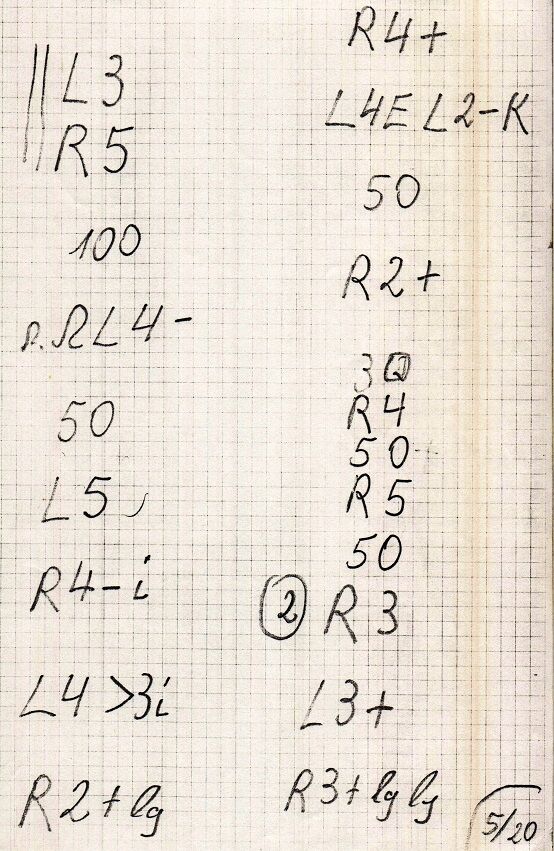 L3
R5
100
R. ΩL4-
50
L5
R4-i
L4>3i
R2+lg
R4+
L4E L2-K
50
R2+
30
R4
50
R5
50
2 R3
L3+
R3+lg lg
5/20